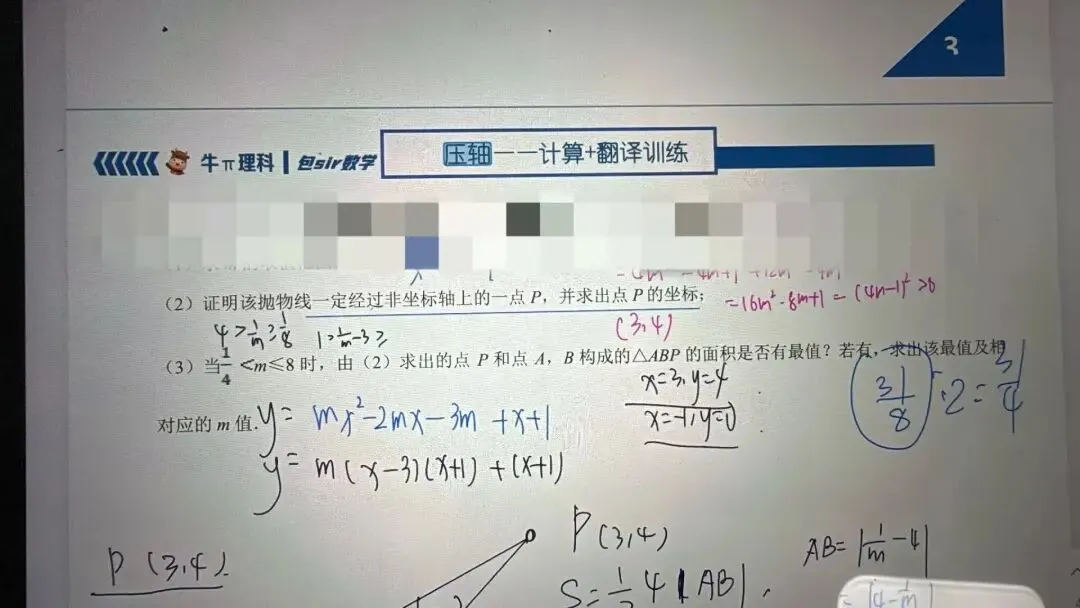 3
牛π理科 | 包sir数学
压轴——计算+翻译训练
(2) 证明该抛物线一定经过非坐标轴上的一点 P，并求出点 P 的坐标；
=16m²-8m+1=(4m-1)²>0
4>1/m≥1/8
(3,4)
(3) 当1/4<m≤8 时，由（2）求出的点 P 和点 A，B 构成的△ABP 的面积是否有最值？若有，求出该最值及相
x=3,y=4
31/8·2=31/4
对应的 m 值.
y=mx²-2mx-3m+x+1
x=-1,y=0
y=m(x-3)(x+1)+(x+1)
P(3,4)
P(3,4).
AB=|1/m-4|